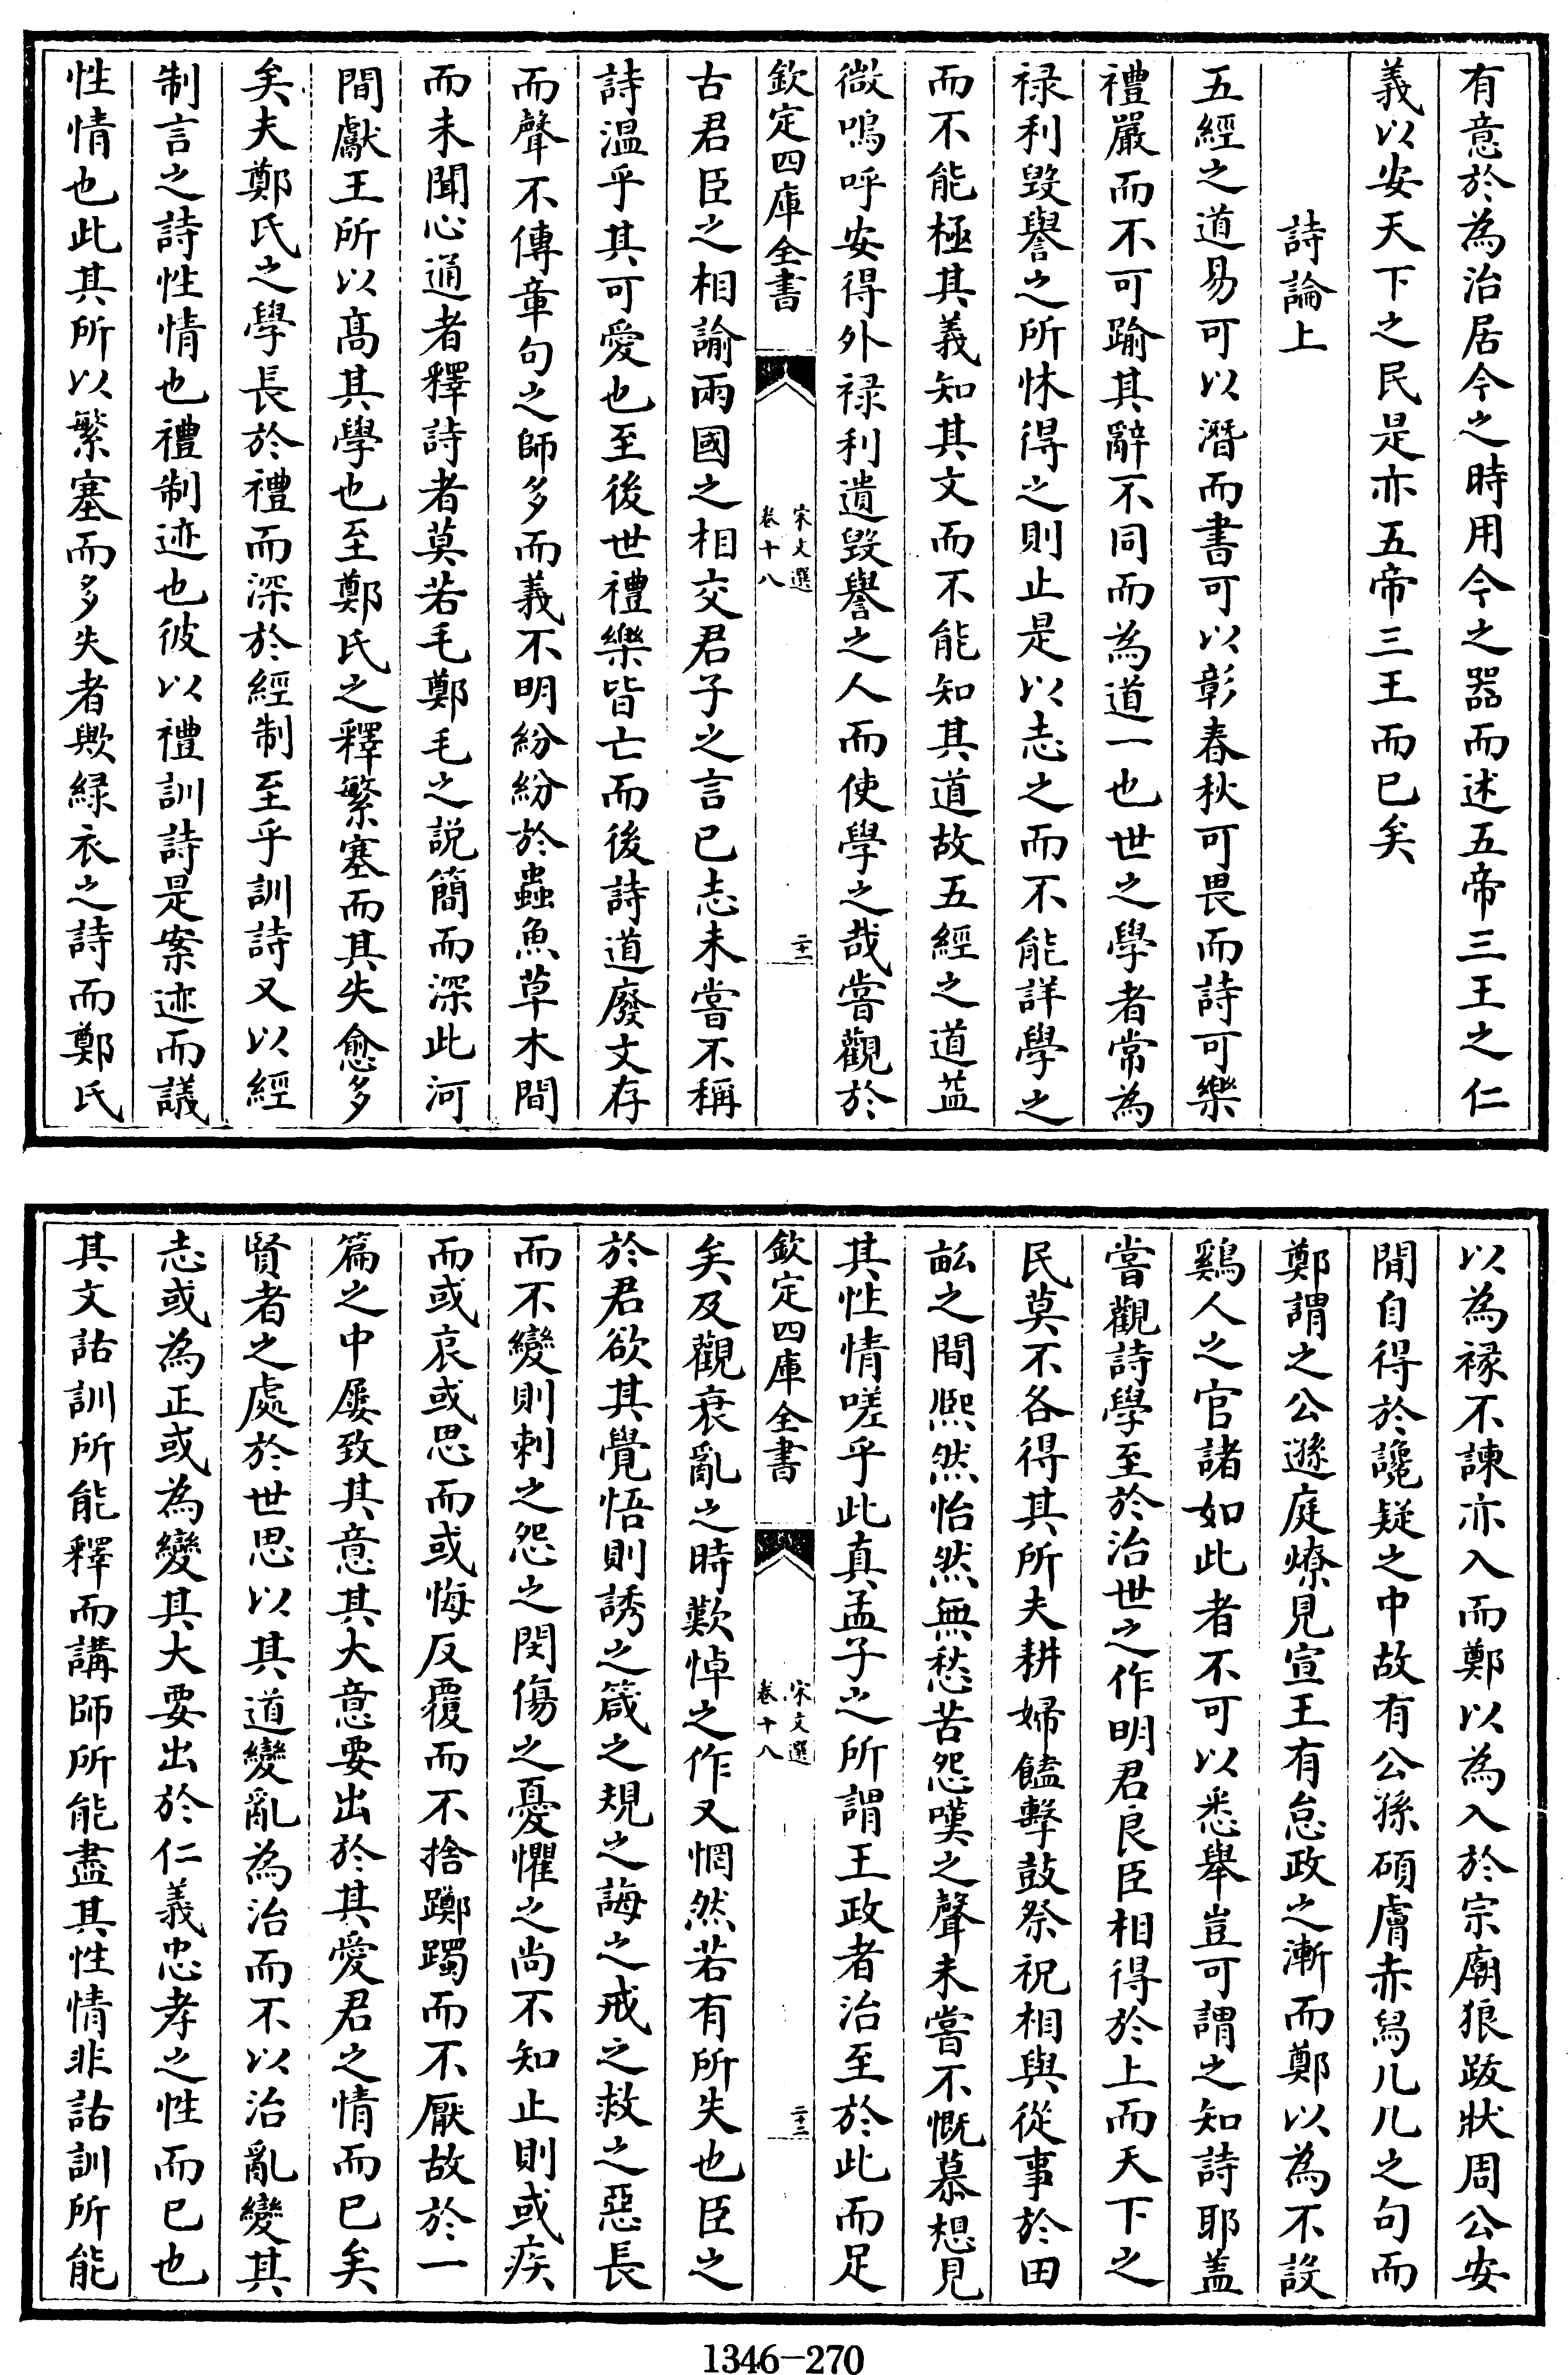 有意於為治居今之時用今之器而述五帝三王之仁
義以安天下之民是亦五帝三王而已矣
詩論上
五經之道易可以潛而書可以彰春秋可畏而詩可樂
禮嚴而不可踰其辭不同而為道一也世之學者常為
禄利毀譽之所怵得之則止是以志之而不能詳學之
而不能極其義知其文而不能知其道故五經之道益
微嗚呼安得外禄利遺毀譽之人而使學之哉嘗觀於
欽定四庫全書
宋文選
卷十八
二十二
古君臣之相諭兩國之相交君子之言已志未嘗不稱
詩温乎其可愛也至後世禮樂皆亡而後詩道廢文存
而聲不傳章句之師多而義不明紛紛於蟲魚草木間
而未聞心通者釋詩者莫若毛鄭毛之説簡而深此河
間獻王所以高其學也至鄭氏之釋繁塞而其失愈多
矣夫鄭氏之學長於禮而深於經制至乎訓詩又以經
制言之詩性情也禮制迹也彼以禮訓詩是案迹而議
性情也此其所以繁塞而多失者歟緑衣之詩而鄭氏
以為褖不諫亦入而鄭以為入於宗廟狼跋狀周公安
閒自得於讒疑之中故有公孫碩膚赤舄几几之句而
鄭謂之公遜庭燎見宣王有怠政之漸而鄭以為不設
鷄人之官諸如此者不可以悉舉豈可謂之知詩耶盖
嘗觀詩學至於治世之作明君良臣相得於上而天下之
民莫不各得其所夫耕婦饁擊鼓祭祝相與從事於田
畝之間熈然怡然無愁苦怨嘆之聲未嘗不慨慕想見
其性情嗟乎此真孟子之所謂王政者治至於此而足
欽定四庫全書
宋文選
卷十八
二十三
矣及觀衰亂之時歎悼之作又惘然若有所失也臣之
於君欲其覺悟則誘之箴之規之誨之戒之救之惡長
而不變則刺之怨之閔傷之憂懼之尚不知止則或疾
而或哀或思而或悔反覆而不捨躑躅而不厭故於一
篇之中屢致其意其大意要出於其愛君之情而已矣
賢者之處於世思以其道變亂為治而不以治亂變其
志或為正或為變其大要出於仁義忠孝之性而已也
其文詁訓所能釋而講師所能盡其性情非詁訓所能
1346-270